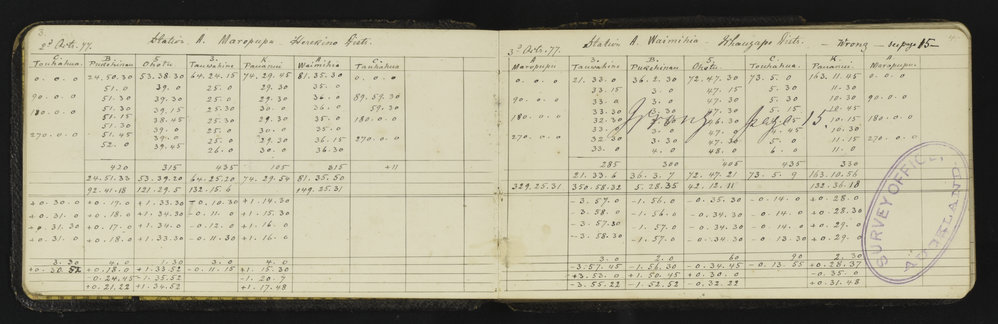 3.
2d Octr. 77. Station A. Maropupu. Herekino Distr.
C. B. 5 3. K A. C.
Tauhahua. Pukehinau Ohotu. Tauwahine Pauanui Waimihia Tauhahua
0. 0. 0 24.50.30 53.38.30 64.24.15 74.29.45 81.35.30 0. 0. 0
51. 0 39. 0 25. 0 29.30 35. 0
90. 0. 0 51.30 39.30 25. 0 29.30 36. 0 89.59.30
51.30 39.15 25.30 30. 0 36. 0 59.30
180. 0. 0 51.15 38.45 25.30 29.30 35. 0 180. 0. 0
51.30 39. 0 25. 0 30. 0 35. 0
270. 0. 0 51.45 39. 0 25. 0 29.30 36.15 270. 0. 0
52. 0 39.45 26. 0 30. 0 36.30
420 315 435 105 315 +11
24.51.33 53.39.20 64.25.20 74.29.54 81.35.50
92.41.18 121.29.5 132.15.6 149.25.31
+0.30.0 +0.17.0 +1.33.30 -0.10.30 +1.14.30
+0.31.0 +0.18.0 +1.34.30 -0.11.0 +1.15.30
+0.31.30 +0.17.0 +1.34.0 -0.12.0 +1.16.0
+0.31.0 +0.18.0 +1.33.30 -0.11.30 +1.16.0
3.30 4.0 1.30 3.0 4.0
+0.30.52 +0.18.0 +1.33.52 -0.11.15 +1.15.30
-0.24.45 -1.35.52 -1.20.7
+0.21.22 +1.34.52 +1.17.48
4.
3d Octr. 77. Station A. Waimihia - Whangape Distr. - Wrong - see page 15 -
A 3. B. 5 C. K. A
Maropupu. Tauwahine Pukehinau Ohotu Tauhahua. Pauanui. Maropupu.
0. 0. 0 21.33.0 36.2.30 72.47.30 73.5.0 163.11.45 0. 0. 0
33.15 3. 0 47.15 5.30 11.30
90. 0. 0 33. 0 3. 0 47.30 5.30 11.30 90. 0. 0
33.30 3. 0 47.30 5.15 10.45
180. 0. 0 32.30 3. 0 46.30 5. 0 10.15 180. 0. 0
33. 0 3.30 4.45 10.30
270. 0. 0 32.30 3. 0 47. 0 5. 0 11.15 270. 0. 0
33. 0 4. 0 48. 0 6. 0 11. 0
Wrong page 15
285 300 405 435 330
21.33.6 36.3.7 72.47.21 73.5.9 163.10.56
329.25.31 350.58.32 5.28.35 42.12.11 132.36.18
-3.57.0 -1.56.0 -0.35.30 -0.14.0 +0.28.0
-3.58.0 -1.56.0 -0.34.30 -0.14.0 +0.28.30
-3.57.30 -1.57.0 -0.34.30 -0.14.0 +0.29.0
-3.58.30 -1.57.0 -0.34.30 -0.13.30 +0.29.0
3.0 2.0 60 90 2.30
-3.57.45 -1.56.30 -0.34.45 -0.13.55 +0.28.37
+3.53.0 +1.50.45 +0.30.0 -0.35.0
-3.55.22 -1.52.52 -0.32.22 +0.31.48
SURVEY OFFICE